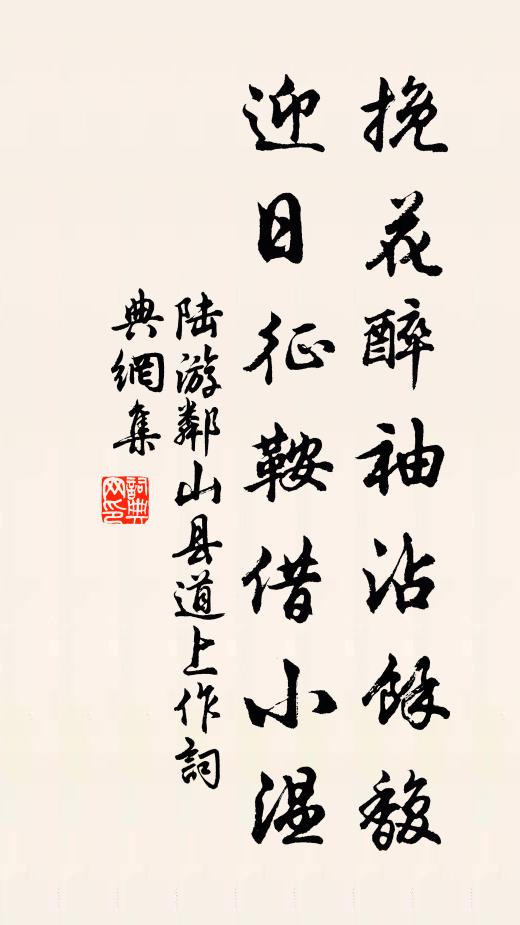 挽花醉袖沾餘馥
迎日征鞍借小温
陆游鄰山县道上作詞
典網集
詞典网印